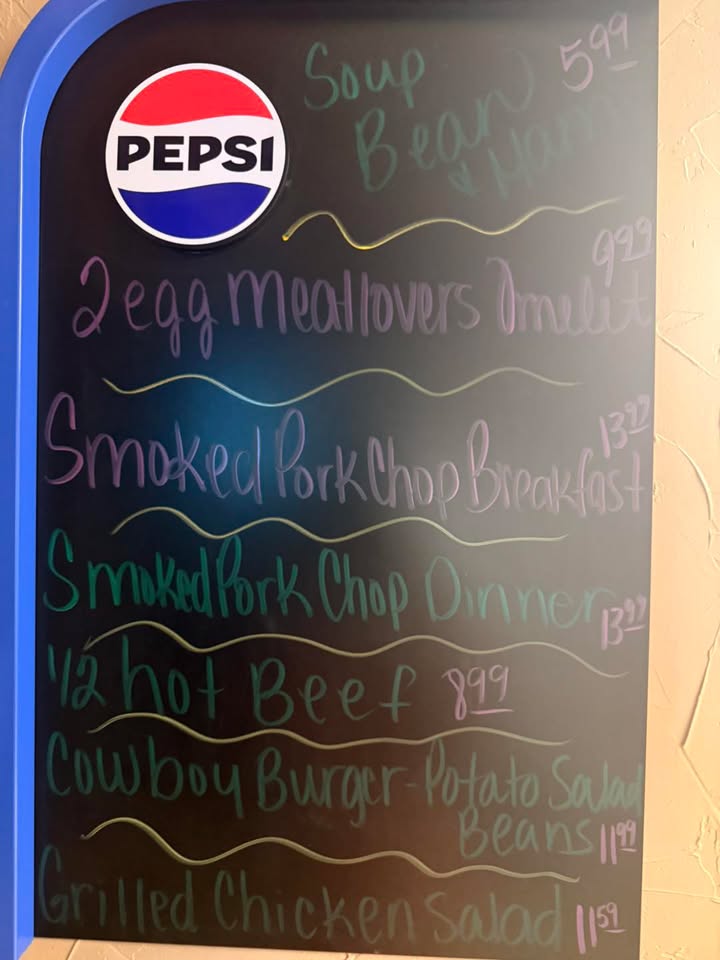 PEPSI
Soup 5.99
Bean
& Ham
9.99
2 egg Meatlovers Omelet
13.99
Smoked Pork Chop Breakfast
Smoked Pork Chop Dinner
13.99
1/2 hot Beef 8.99
Cowboy Burger-Potato Salad
Beans 11.99
Grilled Chicken Salad 11.59